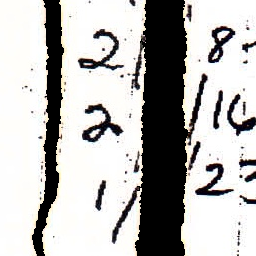 2 8
2 16
1 23